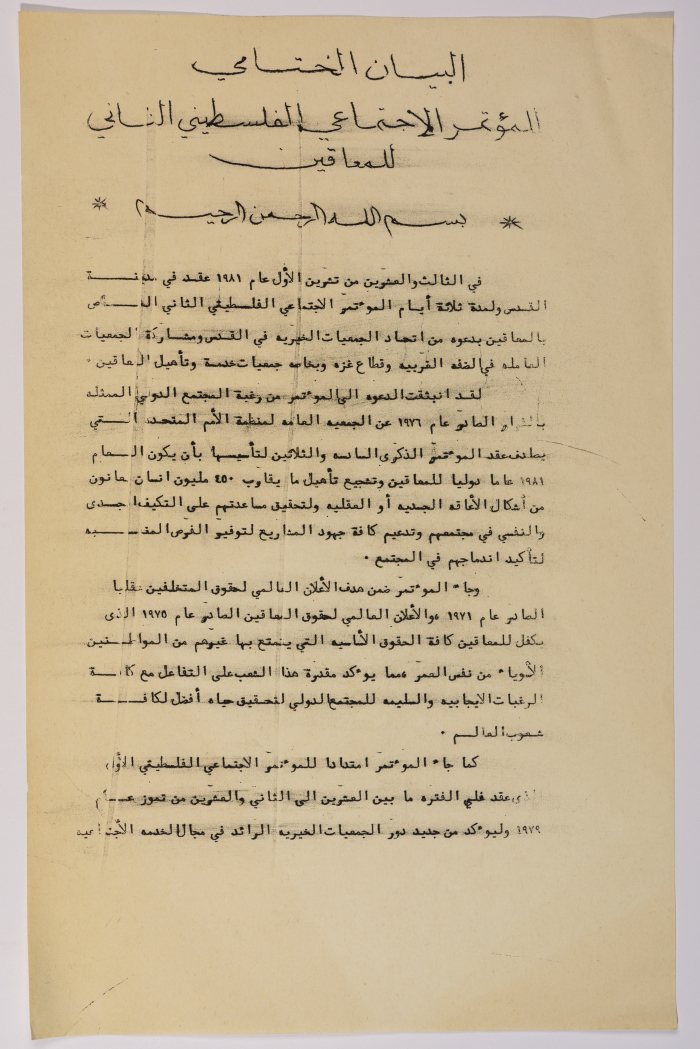 البيان الختامي
المؤتمر الاجتماعي الفلسطيني الثاني
للمعاقين
* بسم الله الرحمن الرحيم *
في الثالث والعشرين من تشرين الأول عام ١٩٨١ عقد في مدينة
القدس ولمدة ثلاثة أيام المؤتمر الاجتماعي الفلسطيني الثاني الخاص
بالمعاقين بدعوه من اتحاد الجمعيات الخيريه في القدس ومشاركة الجمعيات
العامله في الضفه الغربيه وقطاع غزه وبخاصه جمعيات خدمة وتأهيل المعاقين .
لقد انبثقت الدعوه الى المؤتمر من رغبة المجتمع الدولي الممثله
بالقرار الصادر عام ١٩٧٦ عن الجمعيه العامه لمنظمة الأمم المتحده التي
عقد المؤتمر الذكرى السادسه والثلاثين لتأسيسها بأن يكون العام
١٩٨١ عاما دوليا للمعاقين وتشجيع تأهيل ما يقارب ٤٥٠ مليون انسان يعانون
من أشكال الأعاقه الجسديه أو العقليه ولتحقيق مساعدتهم على التكيف الجسدى
والنفسي في مجتمعهم وتدعيم كافة جهود المشاريع لتوفير الفرص المناسبه
لتأكيد اندماجهم في المجتمع .
وجاء المؤتمر ضمن هدف الأعلان العالمي لحقوق المتخلفين عقليا
الصادر عام ١٩٧١ ، والأعلان العالمي لحقوق المعاقين الصادر عام ١٩٧٥ الذى
يكفل للمعاقين كافة الحقوق الأساسيه التي يتمتع بها غيرهم من المواطنين
الأسوياء من نفس العمر ، مما يؤكد مقدرة هذا الشعب على التفاعل مع كافة
الرغبات الايجابيه والسليمه للمجتمع الدولي لتحقيق حياه أفضل لكافة
شعوب العالم .
كما جاء المؤتمر امتدادا للمؤتمر الاجتماعي الفلسطيني الأول
الذى عقد في الفتره ما بين العشرين الى الثاني والعشرين من تموز عام
١٩٧٩ وليؤكد من جديد دور الجمعيات الخيريه الرائد في مجال الخدمه الأجتماعيه